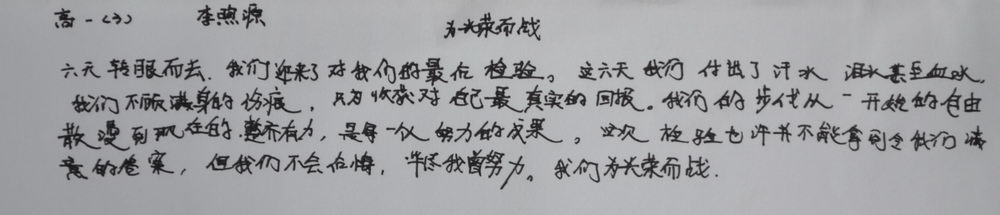 高一(3) 李照源
为光荣而战
六天转眼而去.我们迎来了对我们的最后检验。这六天我们付出了汗水 泪水甚至血水,
我们不顾满身的伤痕,只为收获对自己最真实的回报。我们的步伐从一开始的自由
散漫到现在的整齐有力,是每一个人努力的成果。这次检验也许并不能拿到令我们满
意的答案,但我们不会后悔,毕竟我曾努力。我们为光荣而战.